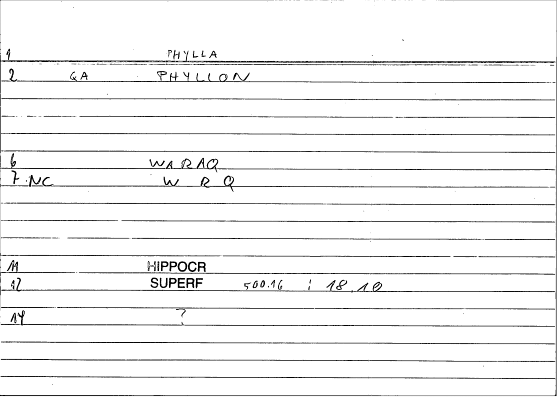 1 PHYLLA
2 GA PHYLLON
6 WARAQ
7 NC W R Q
11 HIPPOCR
12 SUPERF 500.16 : 18.10
14 ?